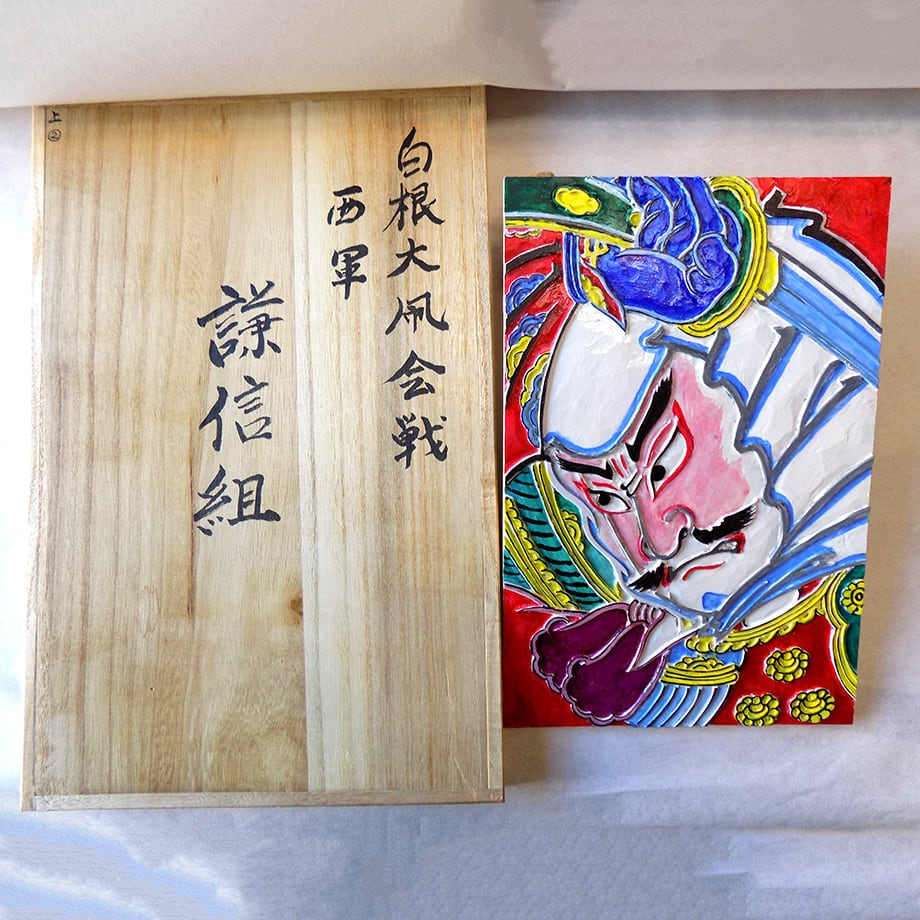 白根大凧会戦
西軍
謙信組
上
②